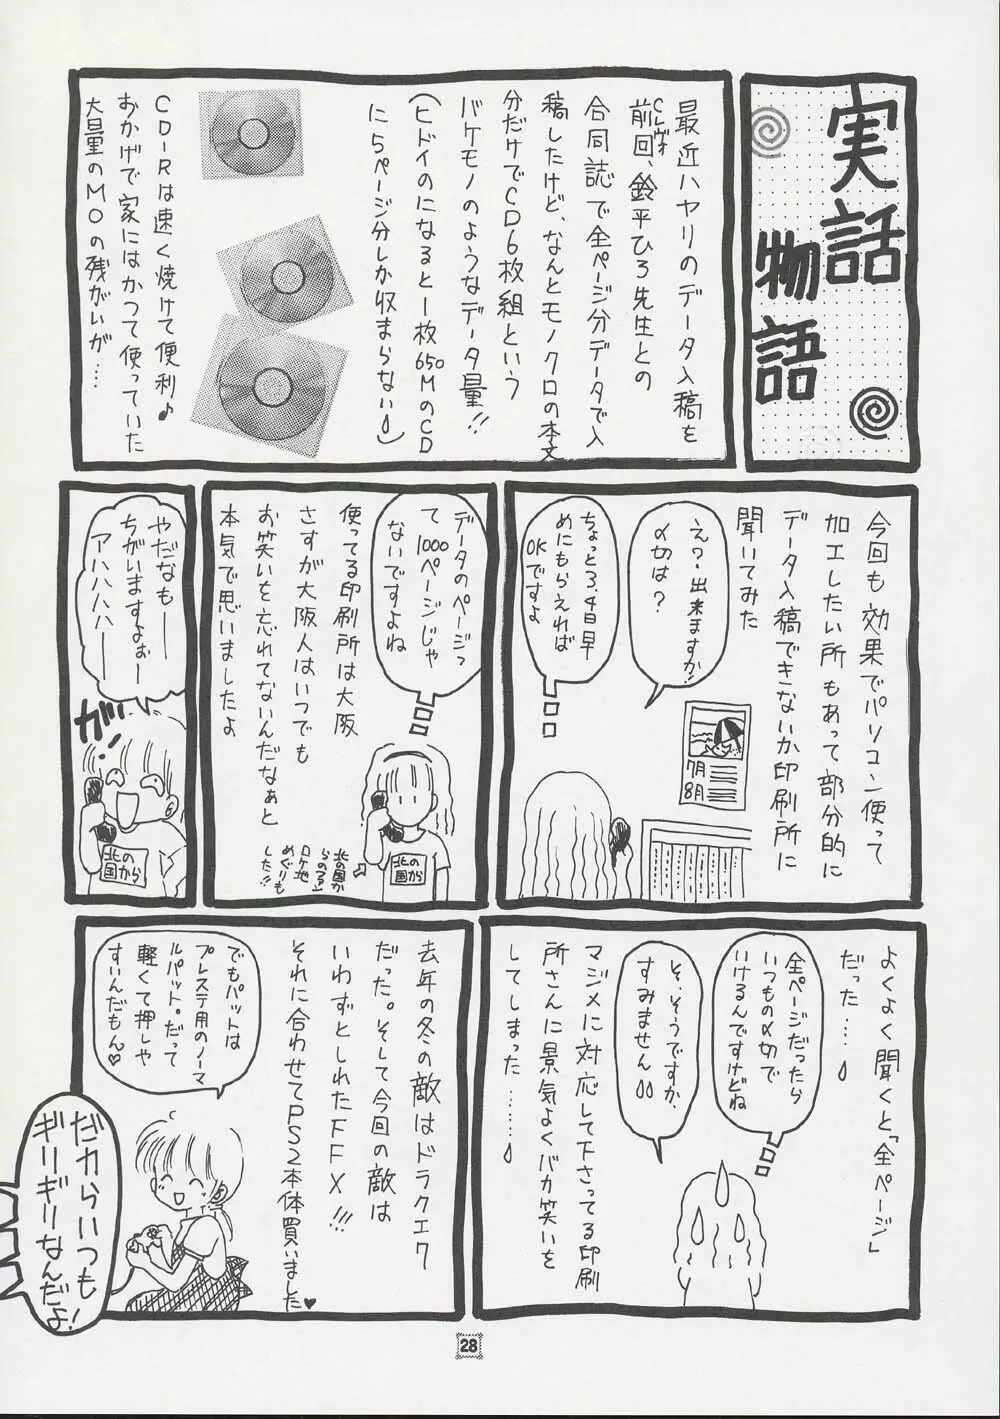 実話
物語
最近ハヤリのデータ入稿を
前回、鈴平ひろ先生との
合同誌で全ページ分データで入
稿したけど、なんとモノクロの本文
分だけでCD6枚組という
バケモノのようなデータ量!!
(ヒドイのになると一枚650MのCD
に5ページ分しか収まらない)
CD-Rは速く焼けて便利♪
おかげで家にはかつて使っていた
大量のMOの残がいが…
今回も効果でパソコン使って
加工したい所もあって部分的に
データ入稿できないか印刷所に
聞いてみた
え?出来ますか!
〆切は?
ちょっと3,4日早
めにもらえれば
OKですよ
7月
8月
データのページっ
て1000ページじゃ
ないですよね
使ってる印刷所は大阪
さすが大阪人はいつでも
お笑いを忘れてないんだなぁと
本気で思いましたよ
北の国から
北の国か
らのフる
ロケ地
めぐりも
した!!
やだなもー
ちがいますよぉー
アハハハハハー
ガハ!
北の国から
よくよく聞くと「全ページ」
だった…
全ページだったら
いつもの〆切で
いけるんですけどね
そ、そうですか、
すみません
マジメに対応して下さってる印刷
所さんに景気よくバカ笑いを
してしまった……
去年の冬の敵はドラクエ7
だった。そして今回の敵は
いわずとしれたFFX!!!
それに合わせてPS2本体買いました♥
でもパットは
プレステ用のノーマ
ルパット。だって
軽くて押しや
すいんだもん♡
だからいつも
ギリギリなんだよ!
28